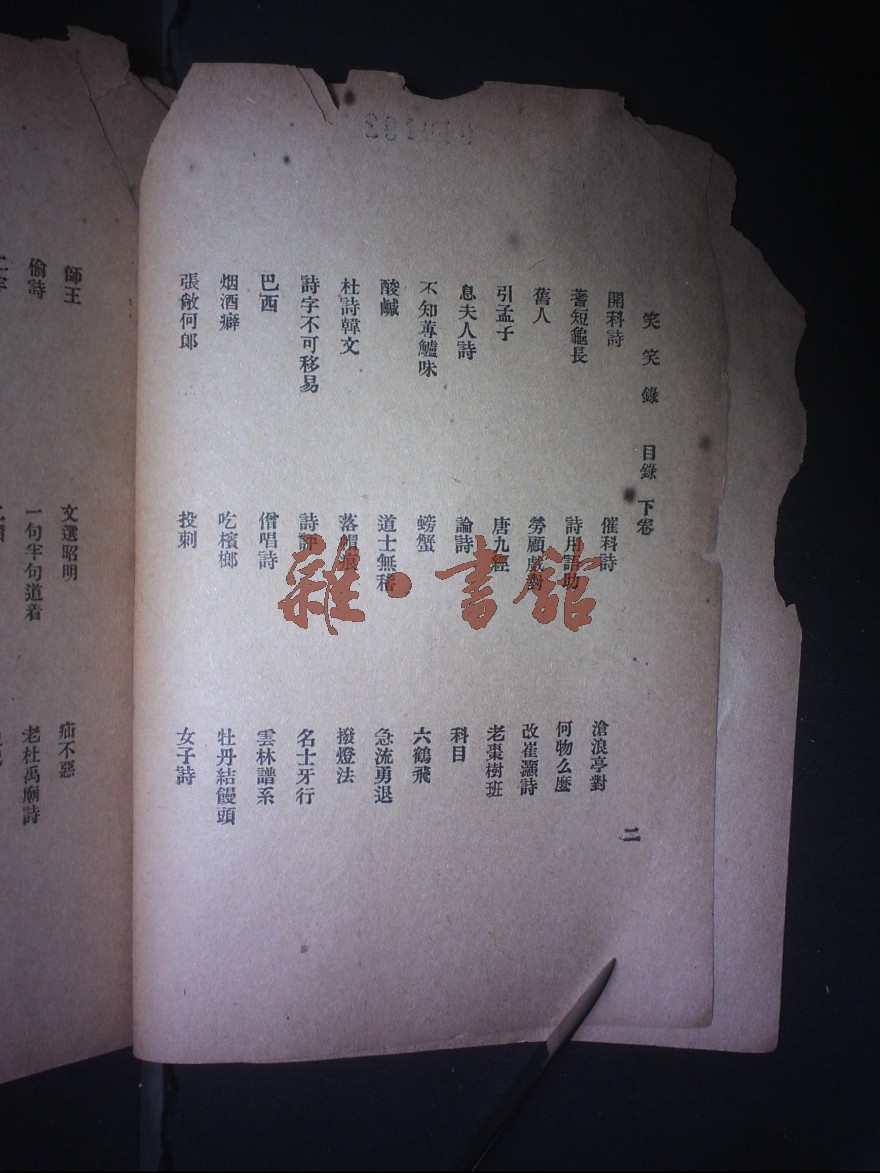 笑笑錄 目錄 下卷 二
開科詩 催科詩 滄浪亭對
蓍短龜長 詩用語助 何物么麼
舊人 勞顧戲對 改崔灝詩
引孟子 唐九經 老棗樹班
息夫人詩 論詩 科目
不知蓴鱸味 螃蟹 六鶴飛
酸鹹 道士無稽 急流勇退
杜詩韓文 落眉痕 撥燈法
詩字不可移易 詩評 名士牙行
巴西 僧唱詩 雲林譜系
烟酒癖 吃檳榔 牡丹結饅頭
張敞何郎 投刺 女子詩
師王 文選昭明 疝不惡
偷詩 一句半句道着 老杜禹廟詩
雜·書館